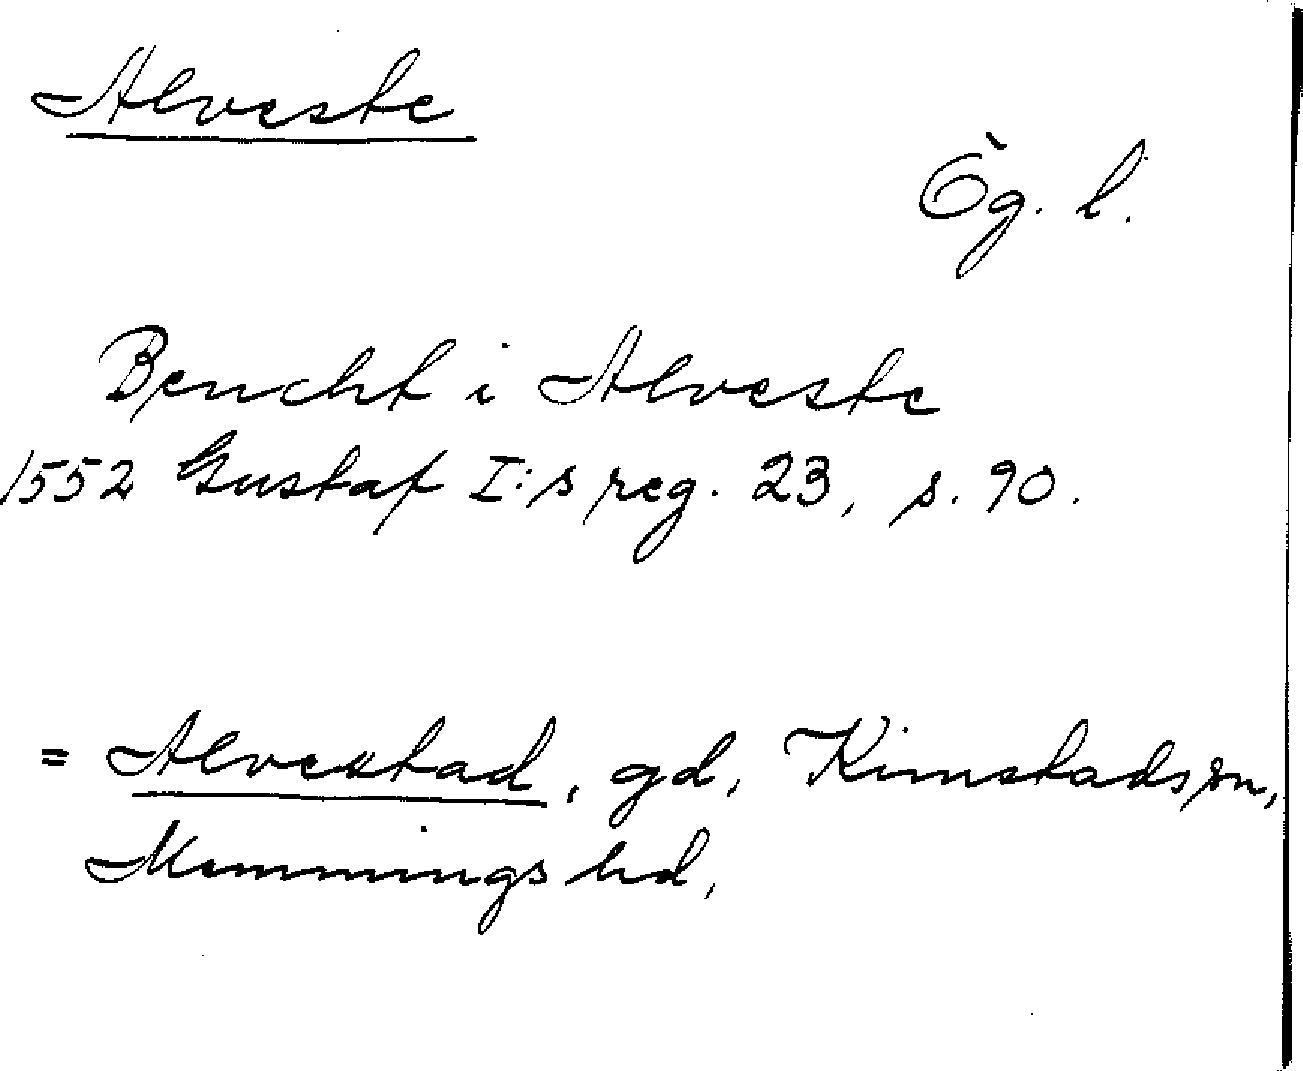 Alveste
Ög. l.
Bencht i Alveste
1552 Gustaf I:s reg. 23, s. 90.
= Alvestad, gd, Kimstads sn,
Memmings hd,